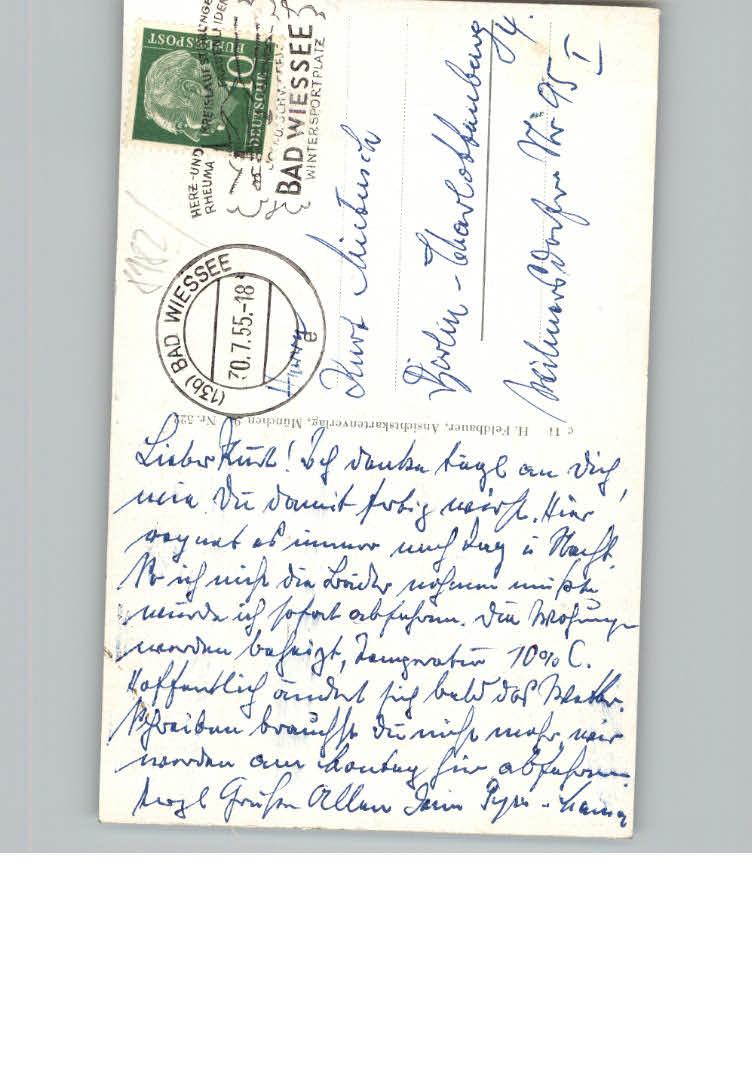 Lieber Kurt! Ich denke tägl an Dich,
wie Du damit fertig wirst. Hier
regnet es immer noch Tag u Nacht.
Wo ich nicht die Bäder nehmen müßte
würde ich sofort abfahren. Die Wohnungen
werden beheizt, Temperatur 10% C.
Hoffentlich ändert sich bald das Wetter.
Schreiben brauchst Du nicht mehr, wir
werden am Montag hier abfahren.
Herzl Grüße Allen Deine
Herrn
Kurt
Berlin-Charlottenburg 4.
Wilmersdorfer Str 95 I
DEUTSCHE BUNDESPOST
10
HERZ- UND KREISLAUFSTÖRUNGEN
RHEUMA
BAD WIESSEE
WINTERSPORTPLATZ
(13b) BAD WIESSEE
30.7.55.-18
a
H. Feldbauer, Ansichtskartenverlag, München 9, Nr. 522